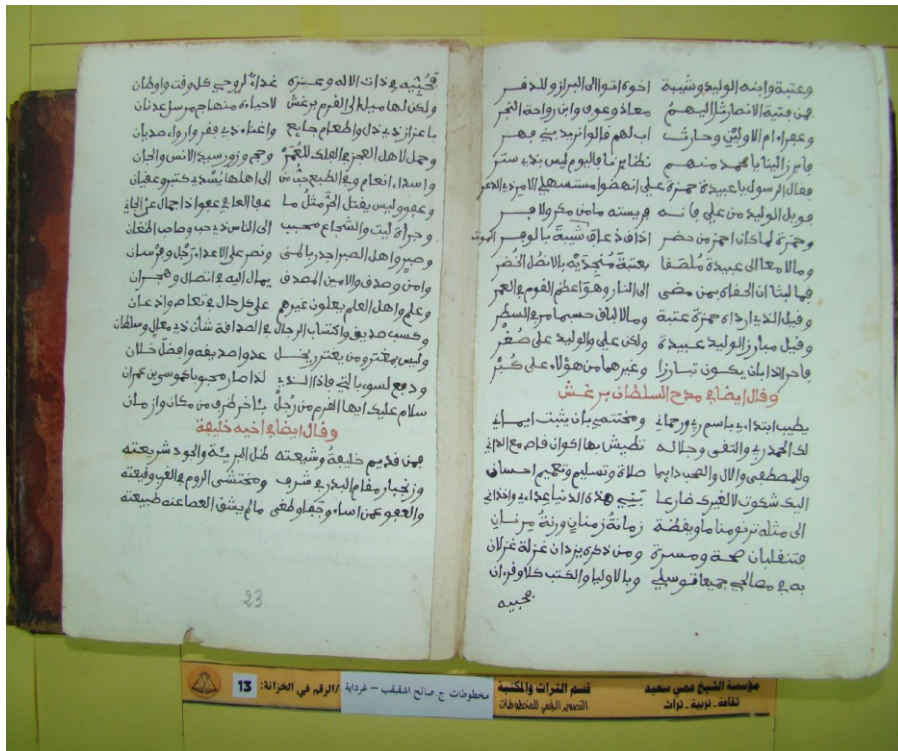 وعتبة وابنه الوليد وشيبة اخوه اتوا الى البراز وللدفر
فمن فتية الانصار ثار اليهم معاذ وعوف وابن رواحة النجر
فابرز الينا يا محمد منهم نظايرنا فاليوم ليس بذي ستر
فقال الرسول يا عبيدة حمزة علي انهضوا مستسهلي الامر ذي الذعر
فويل الوليد من علي فانه فريسته ما من مكر ولا فر
وحمزة لما كان احمز من حضر اذاق ذعاق شيبة بالوفر الموت
ومالا معا الى عبيدة
فما لبثا ان الحقاه بمن مضى الى النار وهو اعظم القوم في العمر
وقيل الذي ارداه حمزة عتبة ومالا لباق حسبما مر في السطر
وقيل مبارز الوليد عبيدة ولكن علي والوليد على صغر
فاحر اذا بان يكون تبارزا وغيرهما من هؤلاء على كبر
وقال ايضا في مدح السلطان برغش
يطيب ابتداءي باسم ربي ورحماني ومختتمي بان يثبت ايماني
لك الحمد ربي والتقى وجلاله تطيش بها اكوان قاص مع الداني
وللمصطفى والال والصحب دايما صلاة وتسليم وتعميم احسان
اليك شكوت لا لغيرك ضارعا بَنِي هذه الدنيا عداءي واخداني
الى مثله ترنو مناما ويقظة زمانة زمنان ورنة مرنان
فتنقلبان صحة ومسرة ومن ذكره يزدان غزلة غزلان
به في مصالحي جميعا توسلي وبالاوليا والكتب كلا وقرءان
محبيه
محبيه في ذات الاله وعزه غداء لروحي كل وقت واوطان
ولكن لها ميل الى القرم برغش لاحياءه منهاج مرسل عدنان
باعزاز ذي ذل واطعام جايع واغناء ذي فقر وارواء صديان
وحمل لاهل العجز في الفلك للعمره وحج وزور سيد الانس والجان
واسداء انعام
وعفو وليس يقتل الحر مثل ما عفا العافي عفوا ذا جمال عن الجاني
وجرأة ليث والشجاع محبب الى الناس ذي حب وصاحب اضغان
وصبر واهل الصبر اجدر بالمنى ونصر على الاعداء رجل وفرسان
وامن وصدق والامين المصدق يمال اليه في اتصال وهجران
وعلم واهل العلم يعلون غيرهم على كل حال في تعاص واذعان
وكسب صديق واكتساب الرجال في الصداقة شأن ذي معال وسلطان
وليس بمغتر ومن يغترر يخل عدوا صديقه وافضل خلان
ودفع لسوء بالتي فاذا الذي لذا صار محبوبا كموسى بن عمران
سلام عليك ايها القرم من رجل بئاخر طرف من مكان وازمان
وقال ايضا في اخيه خليفة
فمن قديم خليفة وشيعته ظل البرية والجود شريعته
وزنجبار مقام البدر في شرف ومختشى الروم في الغرب وقيعته
والعفو عمن اساء وجفا وطغى ما لم يشق العصا عنه طبيعته
23
مؤسسة الشيخ عمي سعيد
ثقافة - تربية - تراث
قسم التراث والمكتبة
التصوير الرقمي للمخطوطات
مخطوطات ج. صالح اشقبقب - غرداية
/الرقم في الخزانة: 13